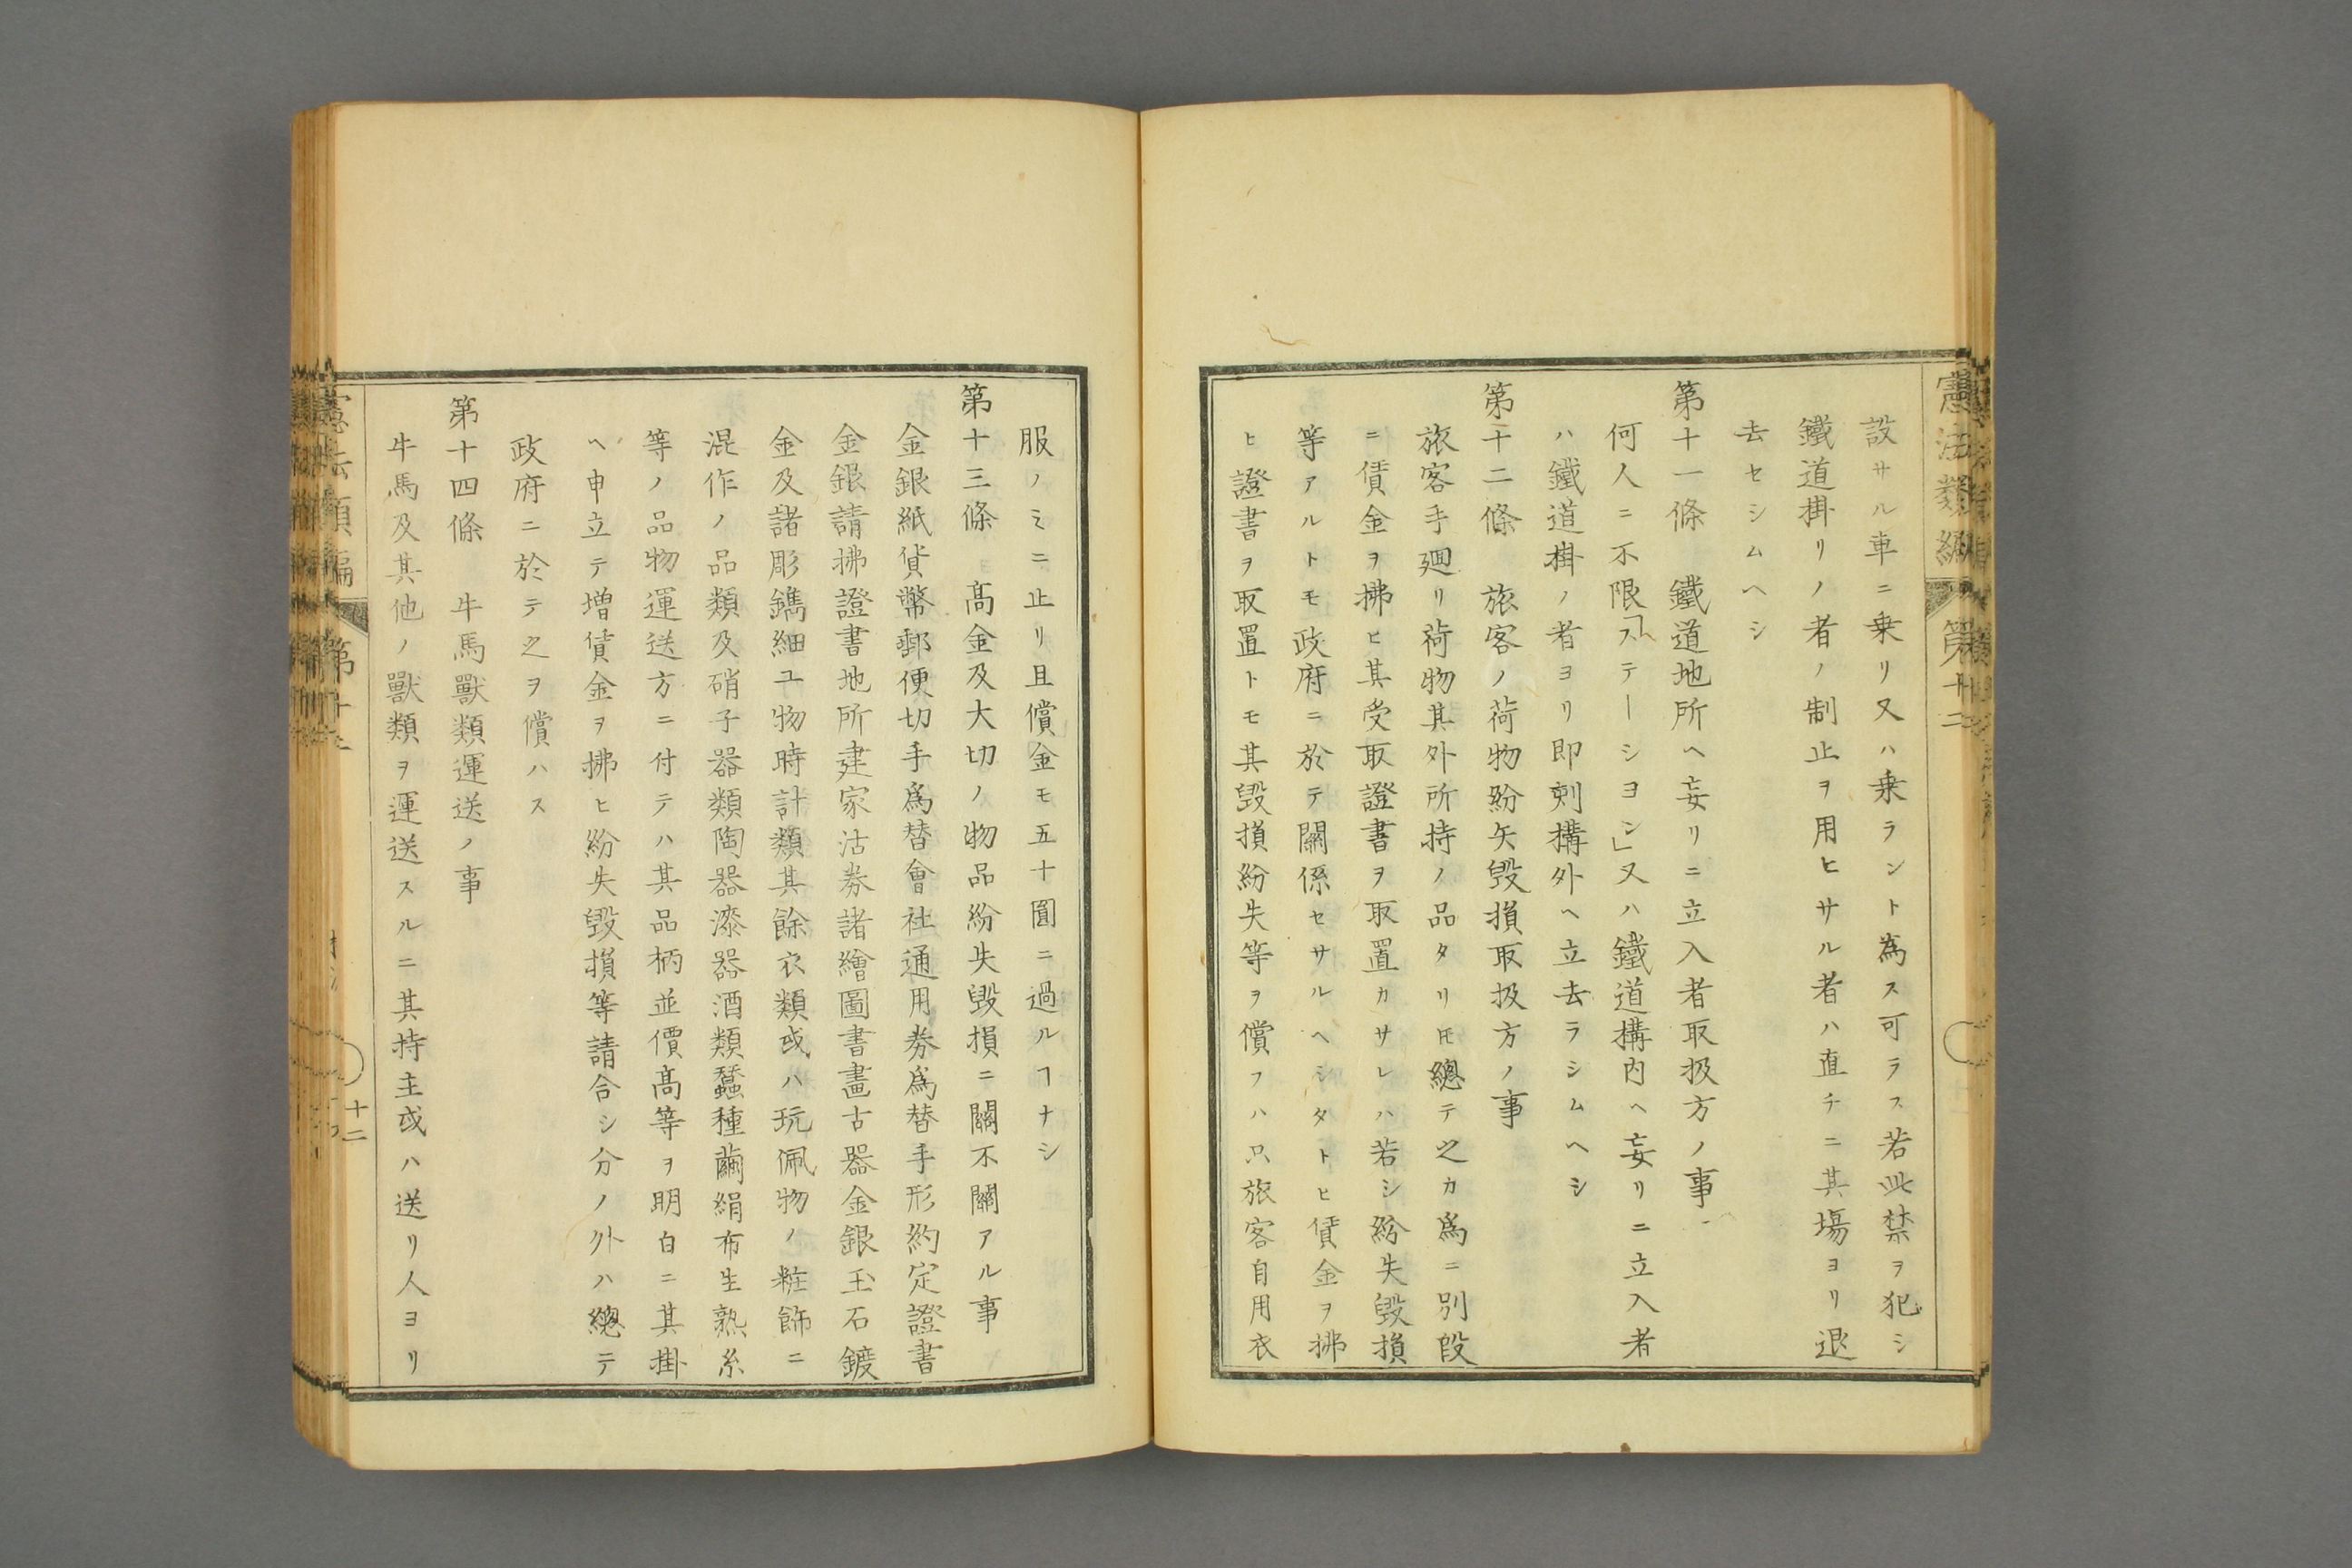 憲法類編
第十二
設サル車ニ乗リ又ハ乗ラント為ス可ラス若此禁ヲ犯シ
鐵道掛リノ者ノ制止ヲ用ヒサル者ハ直チニ其塲ヨリ退
去セシムヘシ
第十一條 鐵道地所ヘ妄リニ立入者取扱方ノ事
何人ニ不限「ステーシヨン」又ハ鐵道構内ヘ妄リニ立入者
ハ鐵道掛ノ者ヨリ即刻構外ヘ立去ラシムヘシ
第十二條 旅客ノ荷物紛失毀損取扱方ノ事
旅客手廻リ荷物其外所持ノ品タリ𪜈總テ之カ爲ニ別段
ニ賃金ヲ拂ヒ其受取證書ヲ取置カサレハ若シ紛失毀損
等アルトモ政府ニ於テ關係セサルヘシタトヒ賃金ヲ拂
ヒ證書ヲ取置トモ其毀損紛失等ヲ償フハ只旅客自用衣
服ノミニ止リ且償金モ五十圓ニ過ルヿナシ
第十三條 高金及大切ノ物品紛失毀損ニ關不關アル事
金銀紙貨幣郵便切手爲替會社通用券爲替手形約定證書
金銀請拂證書地所建家沽券諸繪圖書畫古器金銀玉石鍍
金及諸彫鐫細工物時計類其餘衣類或ハ玩佩物ノ粧飾ニ
混作ノ品類及硝子器類陶器漆器酒類蠶種繭絹布生熟糸
等ノ品物運送方ニ付テハ其品柄並價高等ヲ明白ニ其掛
ヘ申立テ増賃金ヲ拂ヒ紛失毀損等請合シ分ノ外ハ總テ
政府ニ於テ之ヲ償ハス
第十四條 牛馬獸類運送ノ事
牛馬及其他ノ獸類ヲ運送スルニ其持主或ハ送リ人ヨリ
憲法類編
第十二
十二